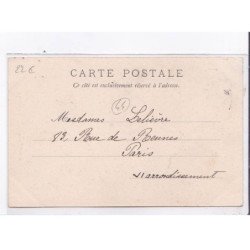 22 €
CARTE POSTALE
Ce côté est exclusivement réservé à l'adresse.
44
Mesdames Lelièvre
82 Rue de Rennes
Paris
VI arrondissement